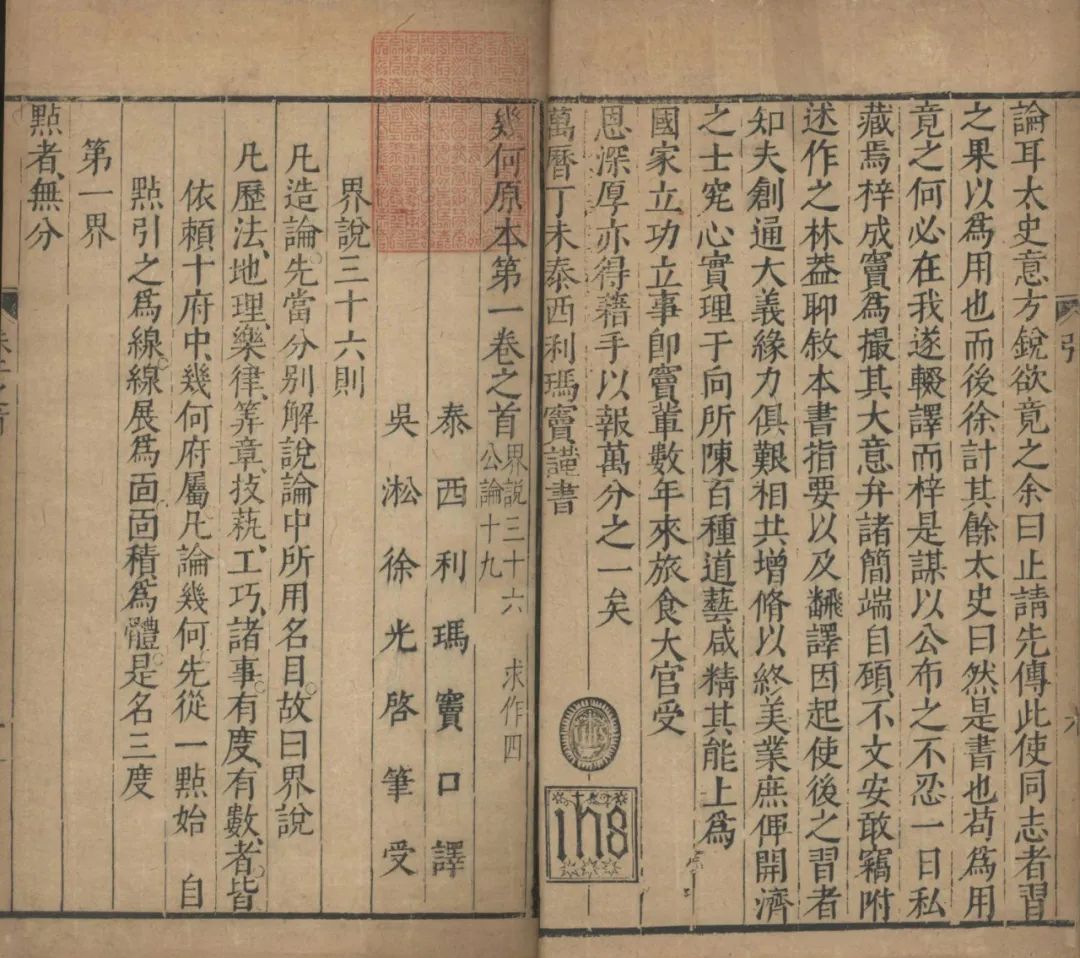 論耳太史意方銳欲竟之余曰止請先傳此使同志者習
之果以爲用也而後徐計其餘太史曰然是書也苟爲用
竟之何必在我遂輟譯而梓是謀以公布之不忍一日私
藏焉梓成竇爲撮其大意弁諸簡端自顧不文安敢竊附
述作之林葢聊敘本書指要以及飜譯因起使後之習者
知夫創通大義緣力俱艱相共增脩以終美業庶俾開濟
之士究心實理于向所陳百種道藝咸精其能上爲
國家立功立事卽竇輩數年來旅食大官受
恩深厚亦得藉手以報萬分之一矣
萬曆丁未泰西利瑪竇謹書
ihs
引
幾何原本第一卷之首 界說三十六 求作四
公論十九
泰西利瑪竇口譯
吳淞徐光啓筆受
界說三十六則
凡造論先當分別解說論中所用名目故曰界說
凡歷法、地理、樂律、筭章、技藝、工巧、諸事、有度、有數、者皆
依賴十府中幾何府屬凡論幾何先從一點始 自
點引之爲線線展爲面面積爲體是名三度
第一界
點者無分